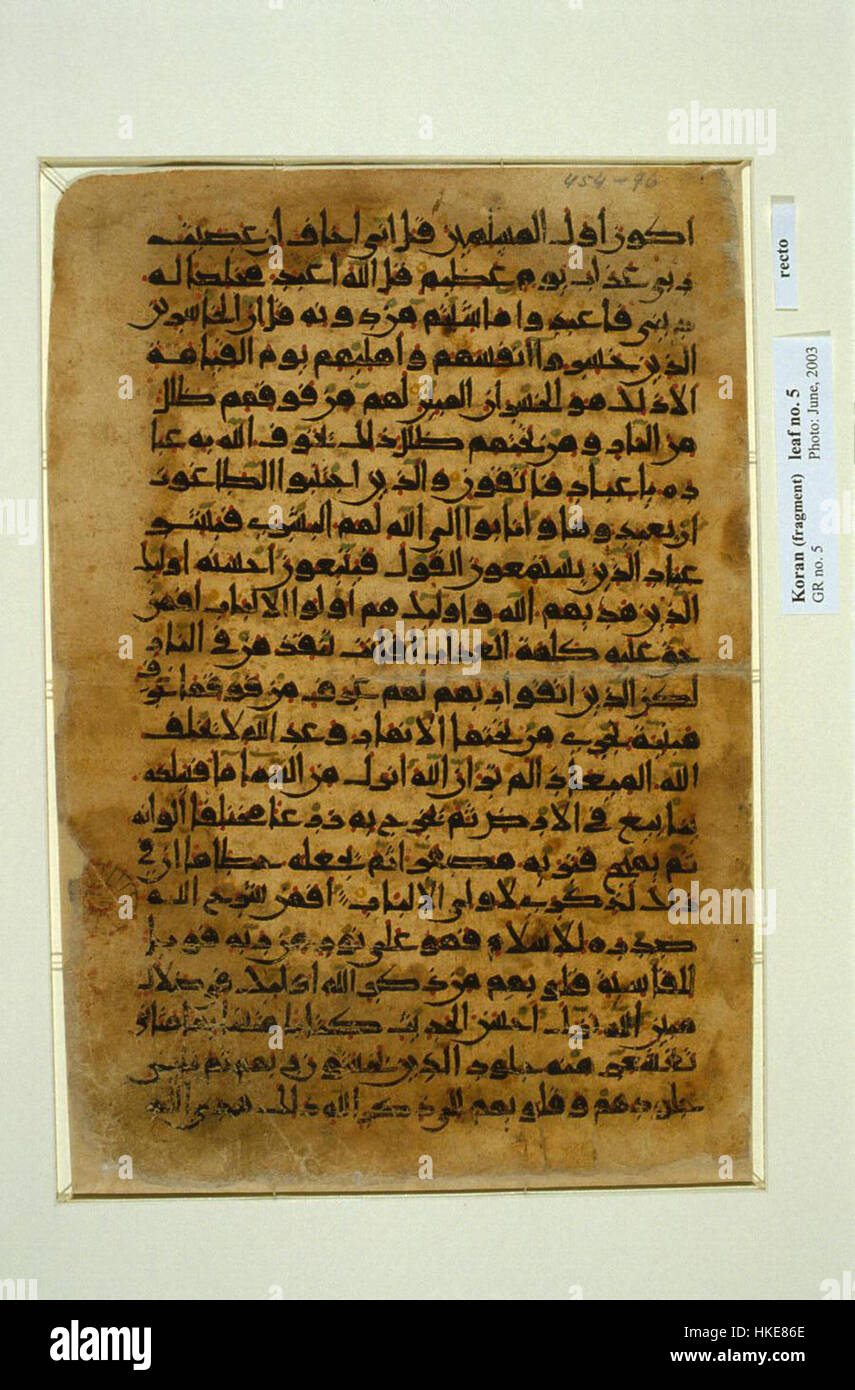 454-96
اكون اول المسلمين قل اني اخاف ان عصيت
ربي عذاب يوم عظيم قل الله اعبد مخلصا له
ديني فاعبدوا ما شئتم من دونه قل ان الخاسرين
الذين خسروا انفسهم واهليهم يوم القيامة
الا ذلك هو الخسران المبين لهم من فوقهم ظلل
من النار ومن تحتهم ظلل ذلك يخوف الله به عبا
ده يا عباد فاتقون والذين اجتنبوا الطاغوت
ان يعبدوها وانابوا الى الله لهم البشرى فبشر
عباد الذين يستمعون القول فيتبعون احسنه اولئك
الذين هديهم الله واولئك هم اولوا الالباب افمن
حق عليه كلمة العذاب افانت تنقذ من في النار
لكن الذين اتقوا ربهم لهم غرف من فوقها غرف
مبنية تجري من تحتها الانهار وعد الله لا يخلف
الله الميعاد الم تر ان الله انزل من السما ما فسلكه
ينابيع في الارض ثم يخرج به زرعا مختلفا الوانه
ثم يهيج فتريه مصفرا ثم يجعله حطاما ان في
ذلك لذكرى لاولي الالباب افمن شرح الله
صدره للاسلام فهو على نور من ربه فويل
للقاسية قلوبهم من ذكر الله اولئك في ضلال
مبين الله نزل احسن الحديث كتابا متشابها مثاني
تقشعر منه جلود الذين يخشون ربهم ثم تلين
جلودهم وقلوبهم الى ذكر الله ذلك هدى الله
recto
Koran (fragment) leaf no. 5
GR no. 5 Photo: June, 2003
alamy stock photo
HKE86E
www.alamy.com